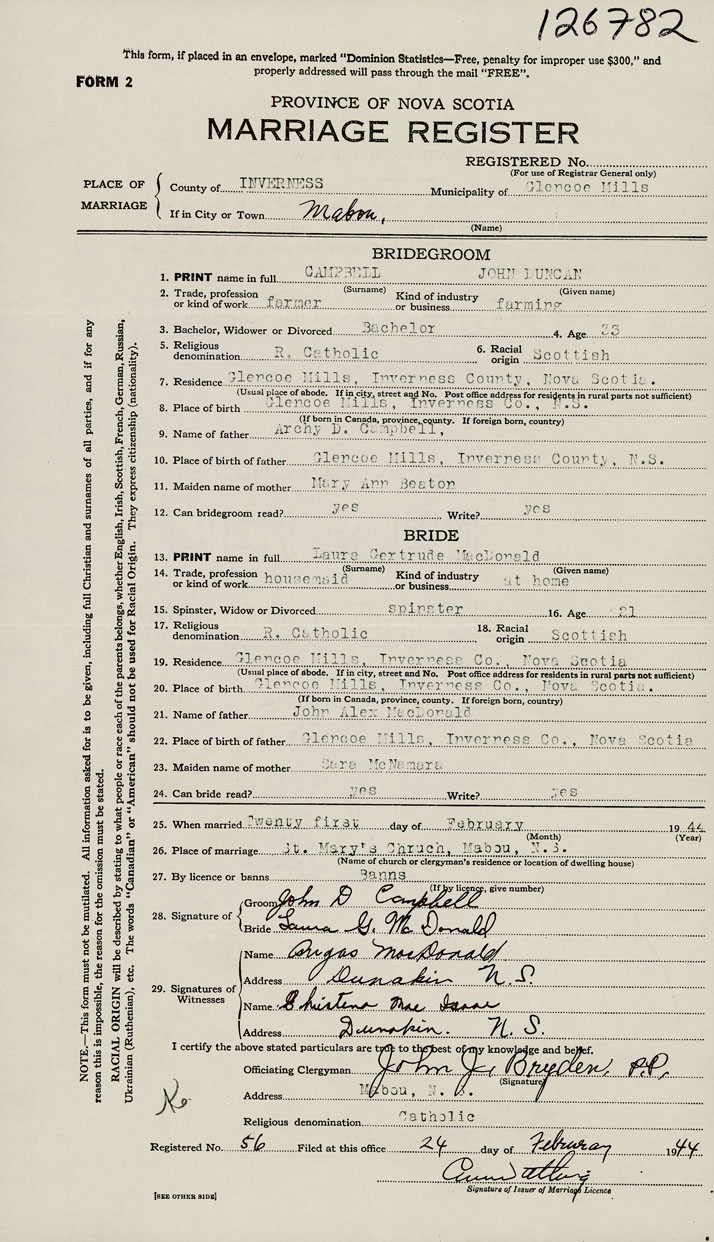 126782
This form, if placed in an envelope, marked "Dominion Statistics—Free, penalty for improper use $300," and
properly addressed will pass through the mail "FREE".
FORM 2
PROVINCE OF NOVA SCOTIA
MARRIAGE REGISTER
REGISTERED No.
(For use of Registrar General only)
PLACE OF MARRIAGE
County of INVERNESS Municipality of Glencoe Mills
If in City or Town Mabou,
(Name)
BRIDEGROOM
1. PRINT name in full CAMPBELL JOHN DUNCAN
(Surname) (Given name)
2. Trade, profession or kind of work farmer Kind of industry or business farming
3. Bachelor, Widower or Divorced Bachelor 4. Age 33
5. Religious denomination R. Catholic 6. Racial origin Scottish
7. Residence Glencoe Mills, Inverness County, Nova Scotia.
(Usual place of abode. If in city, street and No. Post office address for residents in rural parts not sufficient)
8. Place of birth Glencoe Mills, Inverness Co., N.S.
(If born in Canada, province, county. If foreign born, country)
9. Name of father Archy D. Campbell,
10. Place of birth of father Glencoe Mills, Inverness County, N.S.
11. Maiden name of mother Mary Ann Beaton
12. Can bridegroom read? yes Write? yes
BRIDE
13. PRINT name in full Laura Gertrude MacDonald
(Surname) (Given name)
14. Trade, profession or kind of work housemaid Kind of industry or business at home
15. Spinster, Widow or Divorced spinster 16. Age 21
17. Religious denomination R. Catholic 18. Racial origin Scottish
19. Residence Glencoe Mills, Inverness Co., Nova Scotia
(Usual place of abode. If in city, street and No. Post office address for residents in rural parts not sufficient)
20. Place of birth Glencoe Mills, Inverness Co., Nova Scotia.
(If born in Canada, province, county. If foreign born, country)
21. Name of father John Alex MacDonald
22. Place of birth of father Glencoe Mills, Inverness Co., Nova Scotia
23. Maiden name of mother Sara McNamara
24. Can bride read? yes Write? yes
25. When married Twenty first day of February 1944
(Month) (Year)
26. Place of marriage St. Mary's Chruch, Mabou, N.S.
(Name of church or clergyman's residence or location of dwelling house)
27. By licence or banns Banns
(If by licence, give number)
28. Signature of
Groom John D Campbell
Bride Laura G. McDonald
29. Signatures of Witnesses
Name Angus MacDonald
Address Dunakin N.S.
Name Christena Mac Isaac
Address Dunakin. N.S.
I certify the above stated particulars are true to the best of my knowledge and belief.
Officiating Clergyman John J. Bryden, P.P.
(Signature)
Address Mabou, N. S.
Religious denomination Catholic
Registered No. 56 Filed at this office 24 day of Februray 1944
Signature of Issuer of Marriage Licence
[SEE OTHER SIDE]
NOTE.—This form must not be mutilated. All information asked for is to be given, including full Christian and surnames of all parties, and if for any
reason this is impossible, the reason for the omission must be stated.
RACIAL ORIGIN will be described by stating to what people or race each of the parents belongs, whether English, Irish, Scottish, French, German, Russian,
Ukrainian (Ruthenian), etc. The words "Canadian" or "American" should not be used for Racial Origin. They express citizenship (nationality).